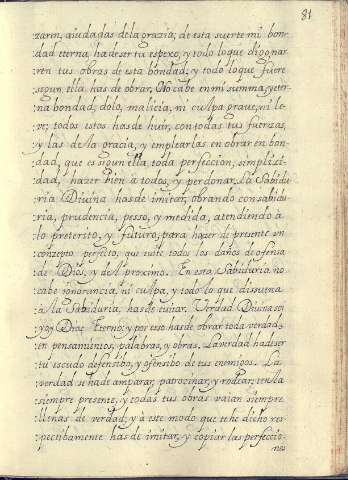 81
zaren, aiudadas dela grazia; de esta suerte mi bon-
dad eterna, ha de ser tu espexo, y todo loque digo, na-
ren tus obras de esta bondad; y todo loque fuere
segun ella, has de obrar. No cabe en mi summa, y eter-
na bondad; dolo, malicia, ni culpa grave, ni le-
ve; todos estos has de huir, con todas tus fuerzas,
y las de la gracia, y emplearlas en obrar en bon-
dad, que es segun ella, toda perfeccion, simplisi-
dad, hazer bien à todos, y perdonar. La Sabidu-
ria Diuina has de imitar, obrando con sabidu-
ria, prudencia, pesso, y medida, atendiendo à
lo preterito, y futuro, para hazer de presente un
concepto perfecto, que euite todos los daños de ofensa
de Dios, y del proximo. En esta Sabiduria no
cabe ignorancia, ni culpa, y todo lo que disuena
à la Sabiduria, has de euitar. Verdad Diuina soi
yo, y Dios Eterno; y por esso has de obrar toda verdad,
en pensamientos, palabras, y obras. La verdad ha de ser
tu escudo defensibo, y ofensibo de tus enemigos. La
verdad se ha de amparar, patrozinar, y rodear, tenerla
siempre presente, y todas tus obras vaian siempre
llenas de verdad; y à este modo que te he dicho res-
pectibamente has de imitar, y copiar las perfeccio-
nes